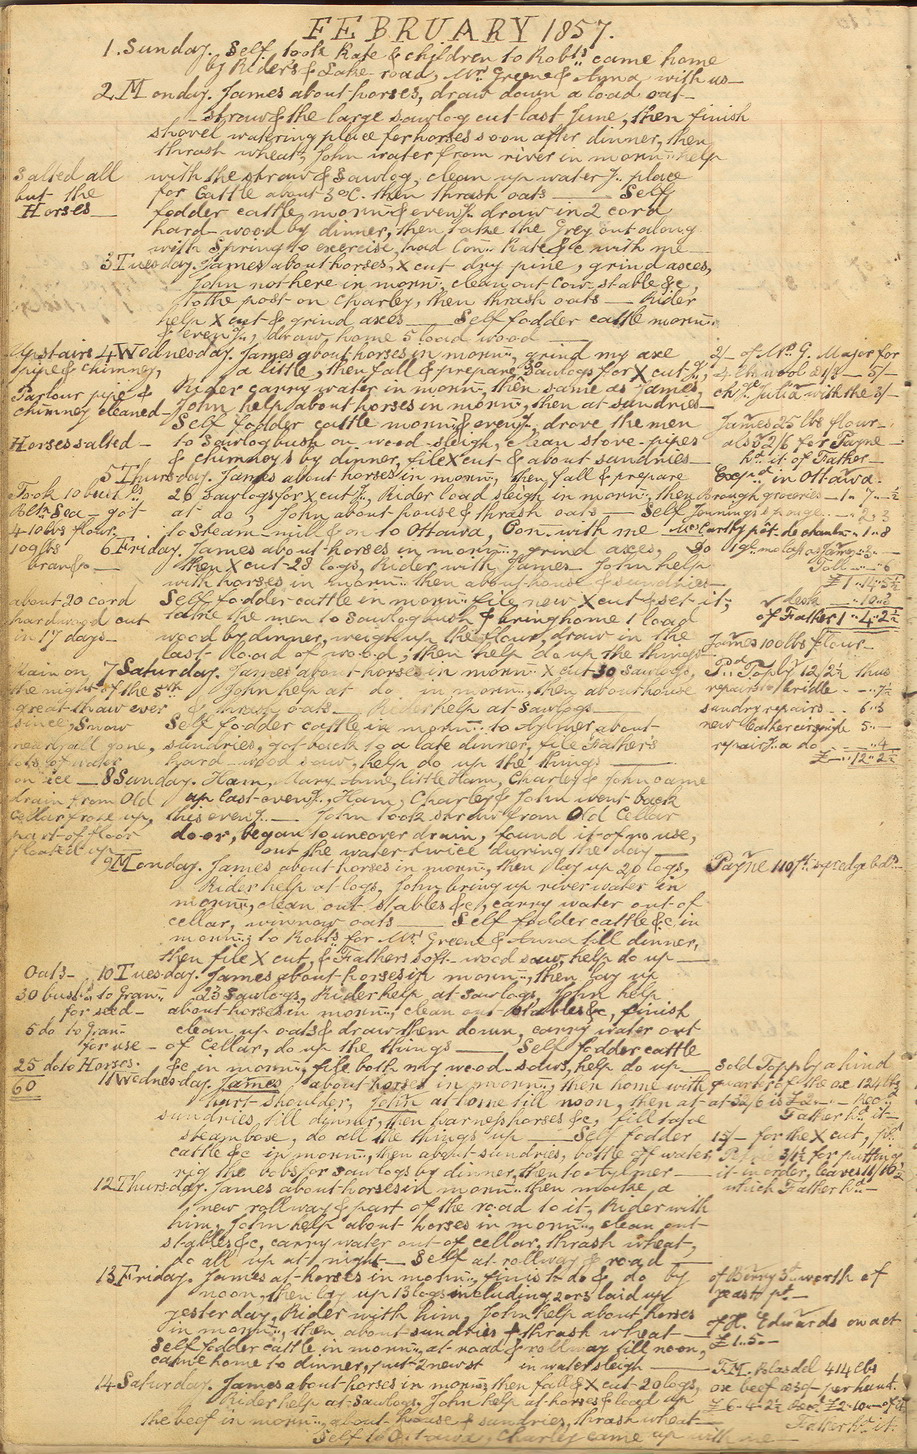 FEBRUARY 1857.
1. Sunday. Self took Kate & children to Robts. came home
by Riders & Lake road, Mrs. Greene & Anna, with us—
2 Monday. James about horses, draw down a load oat—
straw & the large sawlog cut last June, then finish
shovel watering place for horses soon after dinner, then
thrash wheat, John water from river in morng. help
Salted all
but the
Horses—
with the straw & sawlog, clean up waterg. place
for Cattle about 3 oC. then thrash oats — Self
fodder cattle morng. & eveng. draw in 2 cord
hard-wood by dinner, then take the Grey out along
with Spring to exercise, had Con.. Kate &c with me—
3 Tuesday. James about horses, X cut dry pine, grind axes,
John not here in morng. clean out Cow-stable &c,
to the post on Charley, then thrash oats — Rider
help X cut & grind axes — Self fodder cattle morng.
& eveng., draw home 5 load wood —
Upstairs
pipe & chimney,
Parlour pipe &
chimney cleaned—
4 Wednesday. James about horses in morng. grind my axe
a little, then fall & prepare sawlogs for X cutg.,
Rider carry water in morng., then same as James,
John help about horses in morng., then at sundries—
Self fodder cattle morng. & eveng., drove the men
Horses salted—
to sawlog bush on wood-sleigh, clean stove-pipes
& chimneys by dinner, file X cut & about sundries—
2/- of Mr. G. Major for
4 lbs wool @ 1/3 — 5/-
chg. Julia with the 3/-
James 25 lbs flour..
also 2/6 for Payne—
hd. it of Father—
5 Thursday. James about horses in morng., then fall & prepare
26 sawlogs for X cutg., Rider load sleigh in morng., then
at do, John about house & thrash oats — Self
to Steam-mill & on to Ottawa, Con.. with me —
Took 10 bush
got
410 lbs flour,
109 lbs
bran &c—
Expd. in Ottawa.
Brough groceries — 1.. 7..
Jennings sponge — .. 2..3
McCarthy pt. de chaln.. 1..8
Toll .. .. 6
6 Friday. James about horses in morng.., grind axes, go
then X cut 28 logs, Rider with James— John help
with horses in morng.. then about house & sundries—
Self fodder cattle in morng.. file new X cut & set it,
take the men to Sawlog bush & bring home 1 load
wood by dinner, weigh up the flour, draw in the
last load of wood, then help do up the things
about 20 cord
hardwood cut
in 17 days—
desk
of Father
James 100 lbs flour—
7 Saturday. James about horses in morng. X cut 30 sawlogs,
John help at do in morng., then about house
& thrash oats— Rider help at sawlogs—
Self fodder cattle in morng.. to Aylmer, about
sundries, got back to a late dinner, file Fathers
hard-wood saw, help do up the things —
Rain on
the night of the 5th
great thaw ever
since, Snow
nearly all gone,
lots of water
on ice—
Pd. Topby 12/2½ thus
repairs bridle
sundry repairs .. 6..3
new leather
repairg. a do
8 Sunday. Ham, Mary Ann, little Ham, Charley & John came
up last eveng., Ham, Charley & John went back
this eveng.— John took straw from Old Cellar
door, began to uncover drain, found it of no use,
out the water twice during the day—
drain from Old
Cellar froze up,
part of floor
floated up—
9 Monday. James about horses in morng.., then lay up 20 logs,
Rider help at logs, John bring up river water in
morng.., clean out stables &c, carry water out of
cellar, winnow oats — Self fodder cattle &c in
morng.; to Robts. for Mrs. Greene & Anna till dinner,
then file X cut, & Fathers soft-wood saw, help do up—
10 Tuesday. James about horses in morng.., then lay up
23 sawlogs, Rider help at sawlogs, John help
about horses in morng., clean out stables &c, finish
clean up oats & draw them down, carry water out
of Cellar, do up the things — Self fodder cattle
&c in morng., file both my wood-saws, help do up—
Oats—
30 bush. to Gran..
for seed—
6 do to Gran..
for use—
25 do to Horses.
60
11 Wednesday. James about horses in morng.., then home with
hurt shoulder, John at home till noon, then at
sundries till dinner, then harness horses &c, fill
steam box, do all the things up — Self fodder
cattle &c in morng.., then about sundries, bottle off water,
rig the bobs for sawlogs by dinner, then to Aylmer—
Sold Topby a hind
quarter of the ox 124 lbs
at 32/6
Father hd. it—
15/- for the X cut, pd.
for putting
it in order, leaves 11/10½
which Father hd.—
12 Thursday. James about horses in morng.. then make a
new rollway & part of the road to it, Rider with
him, John help about horses in morng.., clean out
stables &c, carry water out of cellar, thrash wheat,
do all up at night— Self at rollway & road—
13 Friday. James at horses in morng.., finish do & do by
noon, then lay up 13 logs including 2 or 3 laid up
yesterday, Rider with him, John help about horses
in morng.., then about sundries & thrash wheat—
Self fodder cattle in morng.. at road & rollway till noon,
came home to dinner, put 2 new st in water sleigh —
of Birry 3d. worth of
yeast pt.—
of H. Edwards on act
£1..5.—
14 Saturday. James about horses in morng., then fall & X cut 20 logs,
Rider help at Sawlogs, John help at horses & load up
the beef in morng.., about house & sundries, thrash wheat—
Self to Ottawa, Charley came up with me—
414 lbs
ox beef per hunt.
Father hd. it.